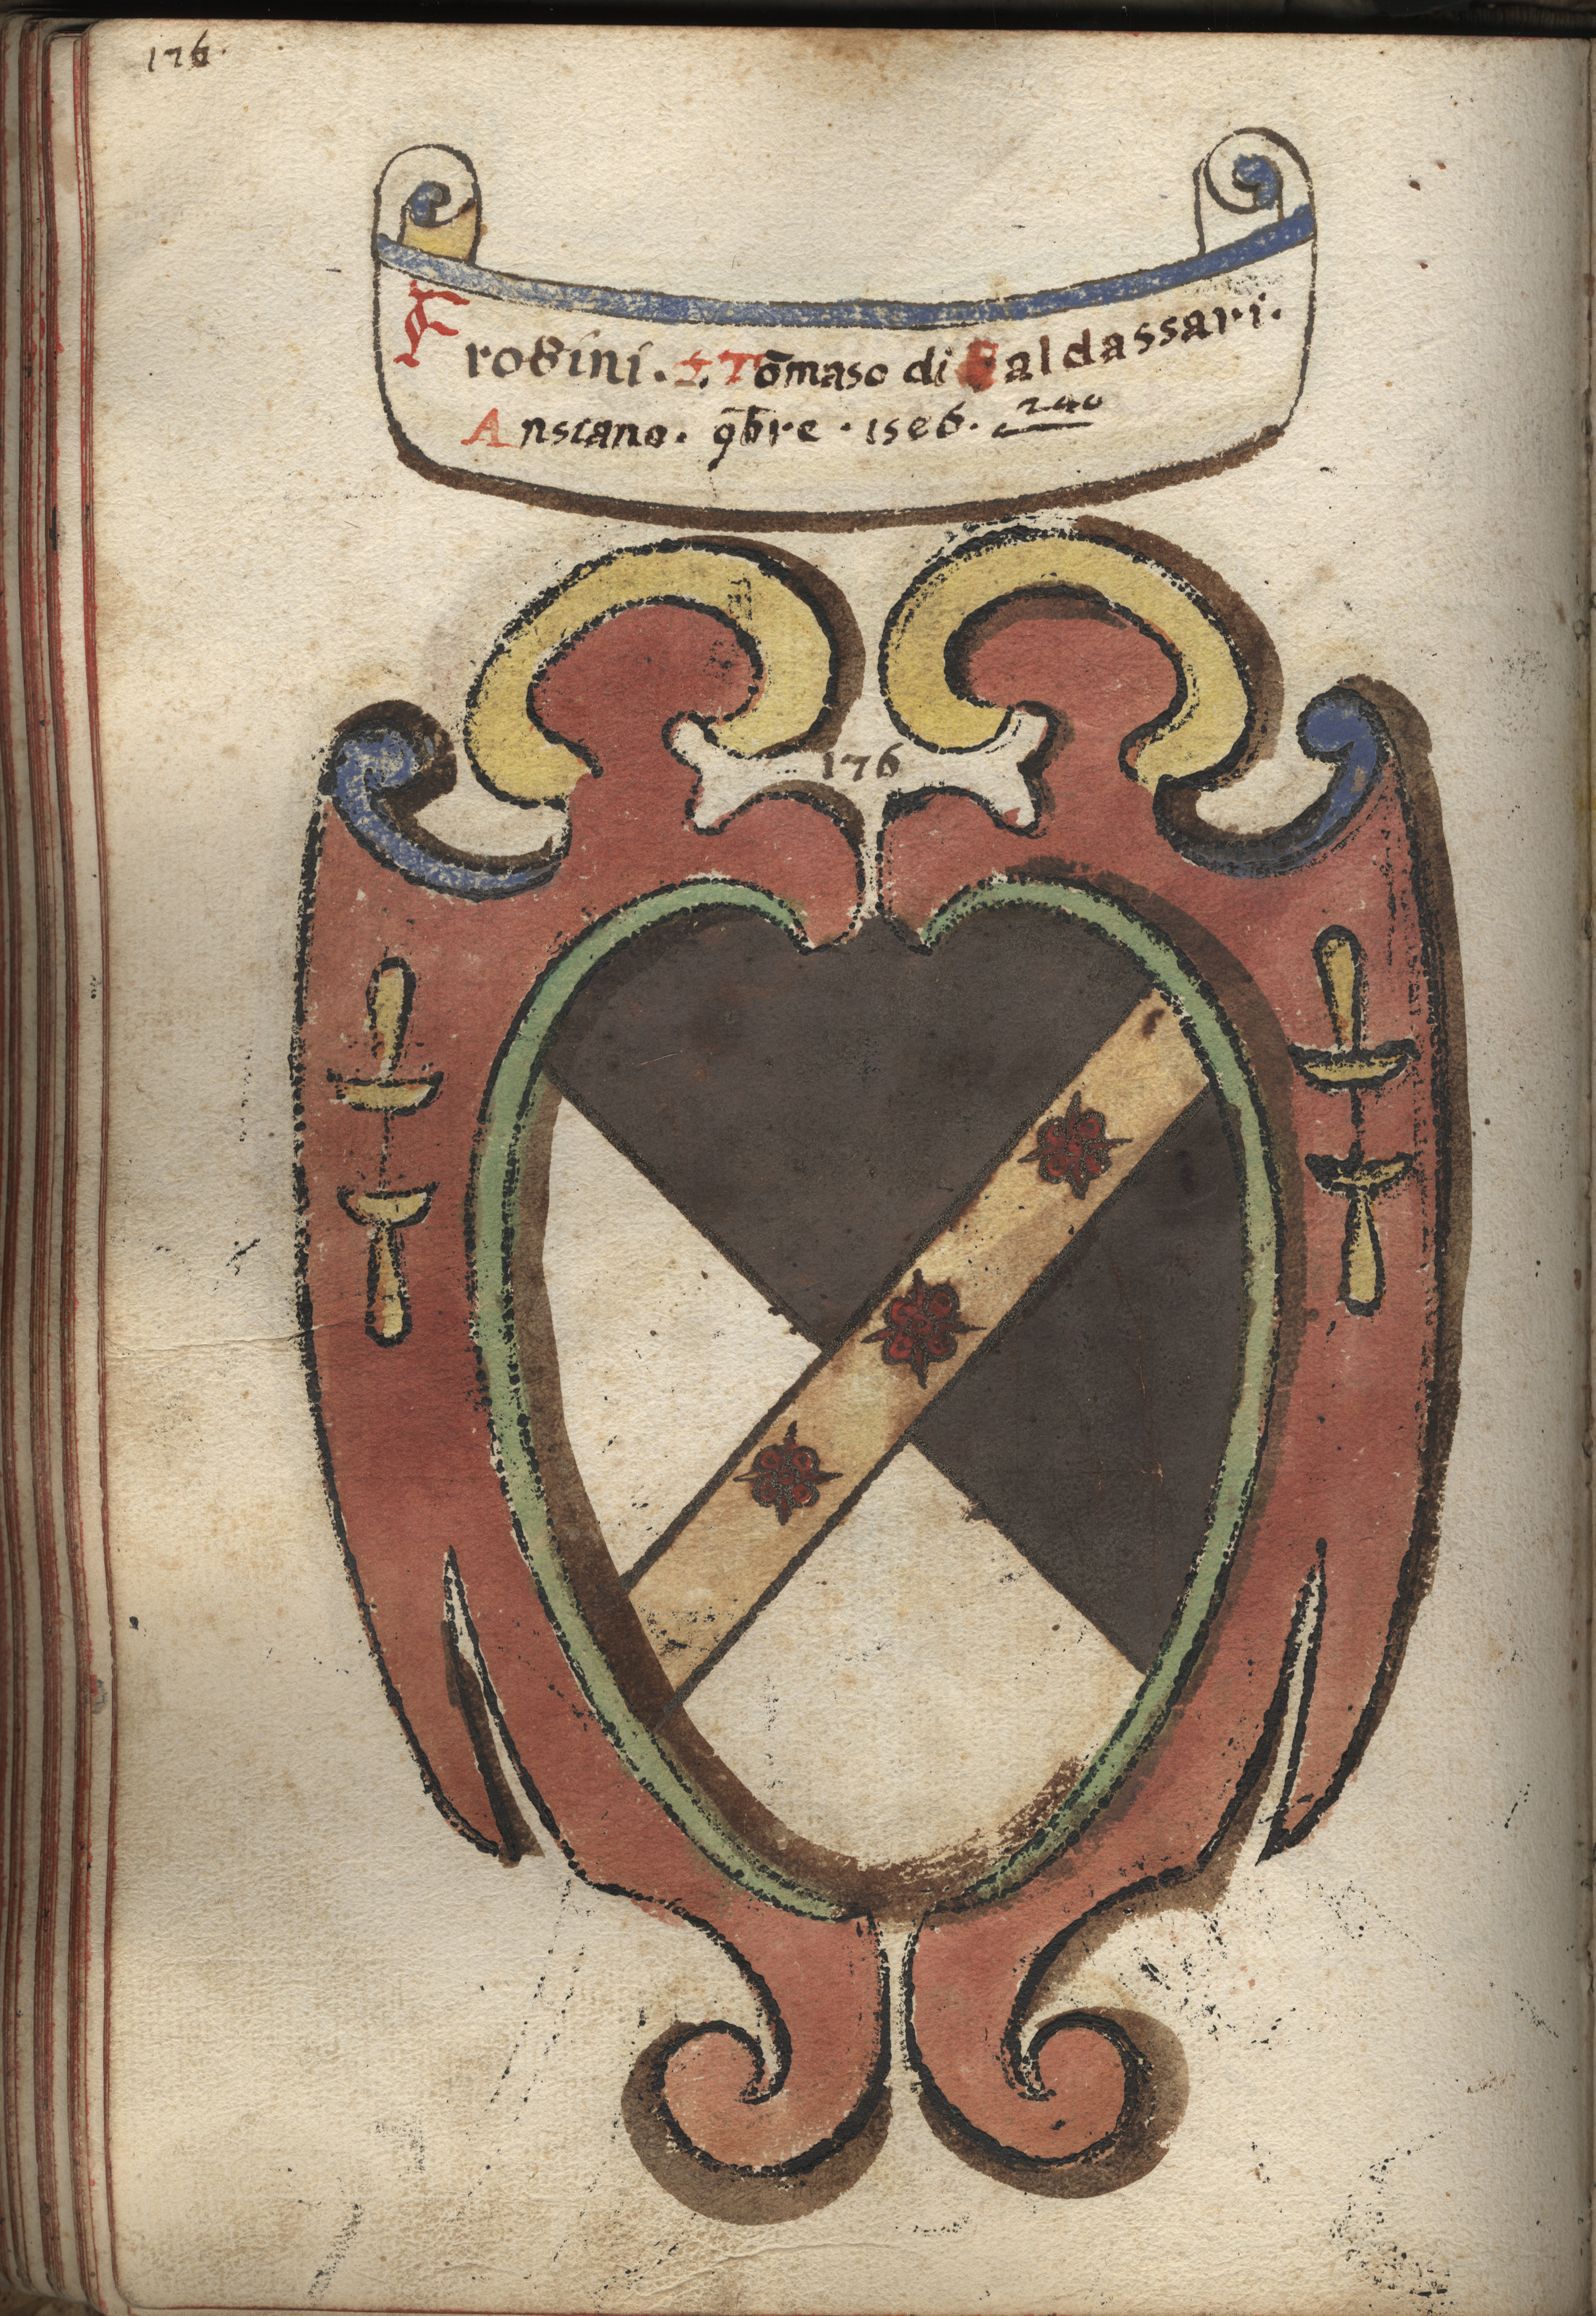 176.
Frosini. Tōmaso di Baldassari.
Anscano. 9b̄re. 1586. 240
176